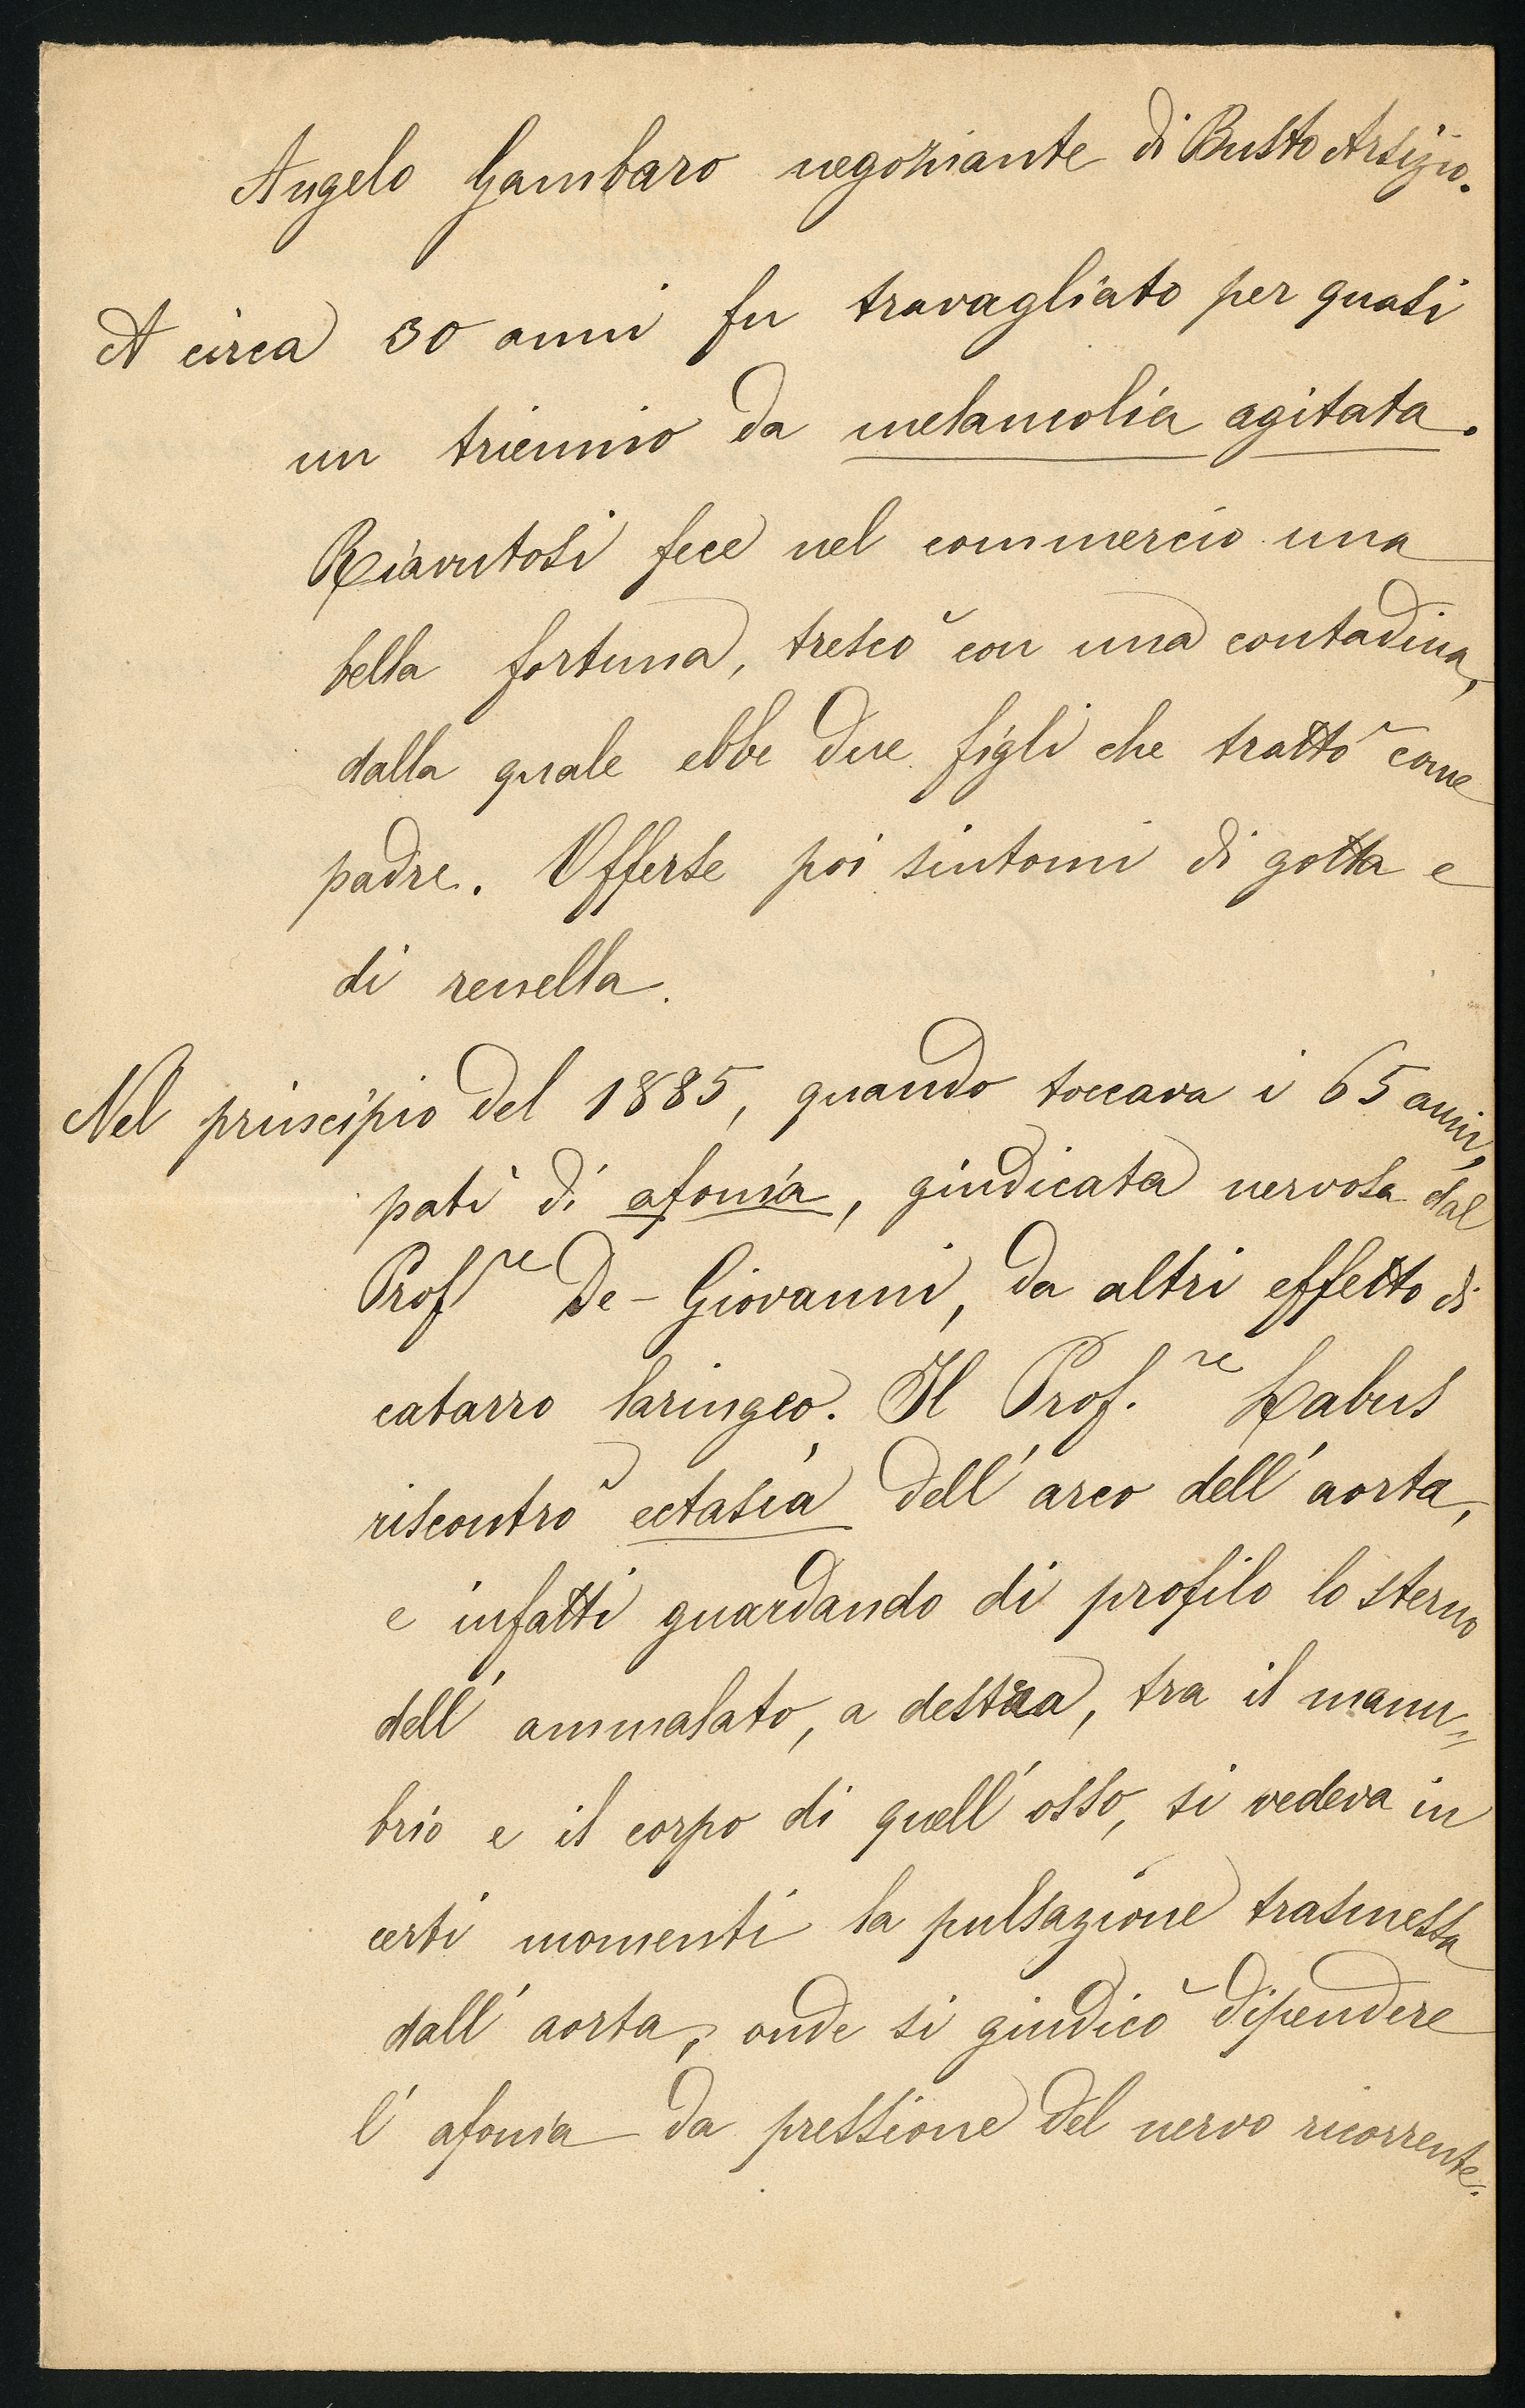 Angelo Gambaro negoziante di Busto Arsizio.
A circa 30 anni fu travagliato per quasi
un triennio da melancolia agitata.
Riavutosi fece nel commercio una
bella fortuna, trescò con una contadina,
dalla quale ebbe due figli che trattò come
padre. Offerse poi sintomi di gotta e
di renella.
Nel principio del 1885, quando toccava i 65 anni,
patì di afonìa, giudicata nervosa dal
Prof.re De-Giovanni, da altri effetto di
catarro laringeo. Il Prof.re Labus
riscontrò ectasìa dell'arco dell'aorta,
e infatti guardando di profilo lo sterno
dell'ammalato, a destra, tra il manu=
brio e il corpo di quell'osso, si vedeva in
certi momenti la pulsazione trasmessa
dall'aorta, onde si giudicò dipendere
l'afonìa da pressione del nervo ricorrente.